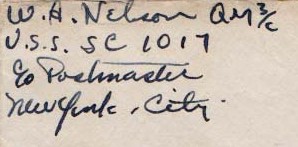 W. H. Nelson QM 3/c
U.S.S. SC 1017
c/o Postmaster
New York, City.